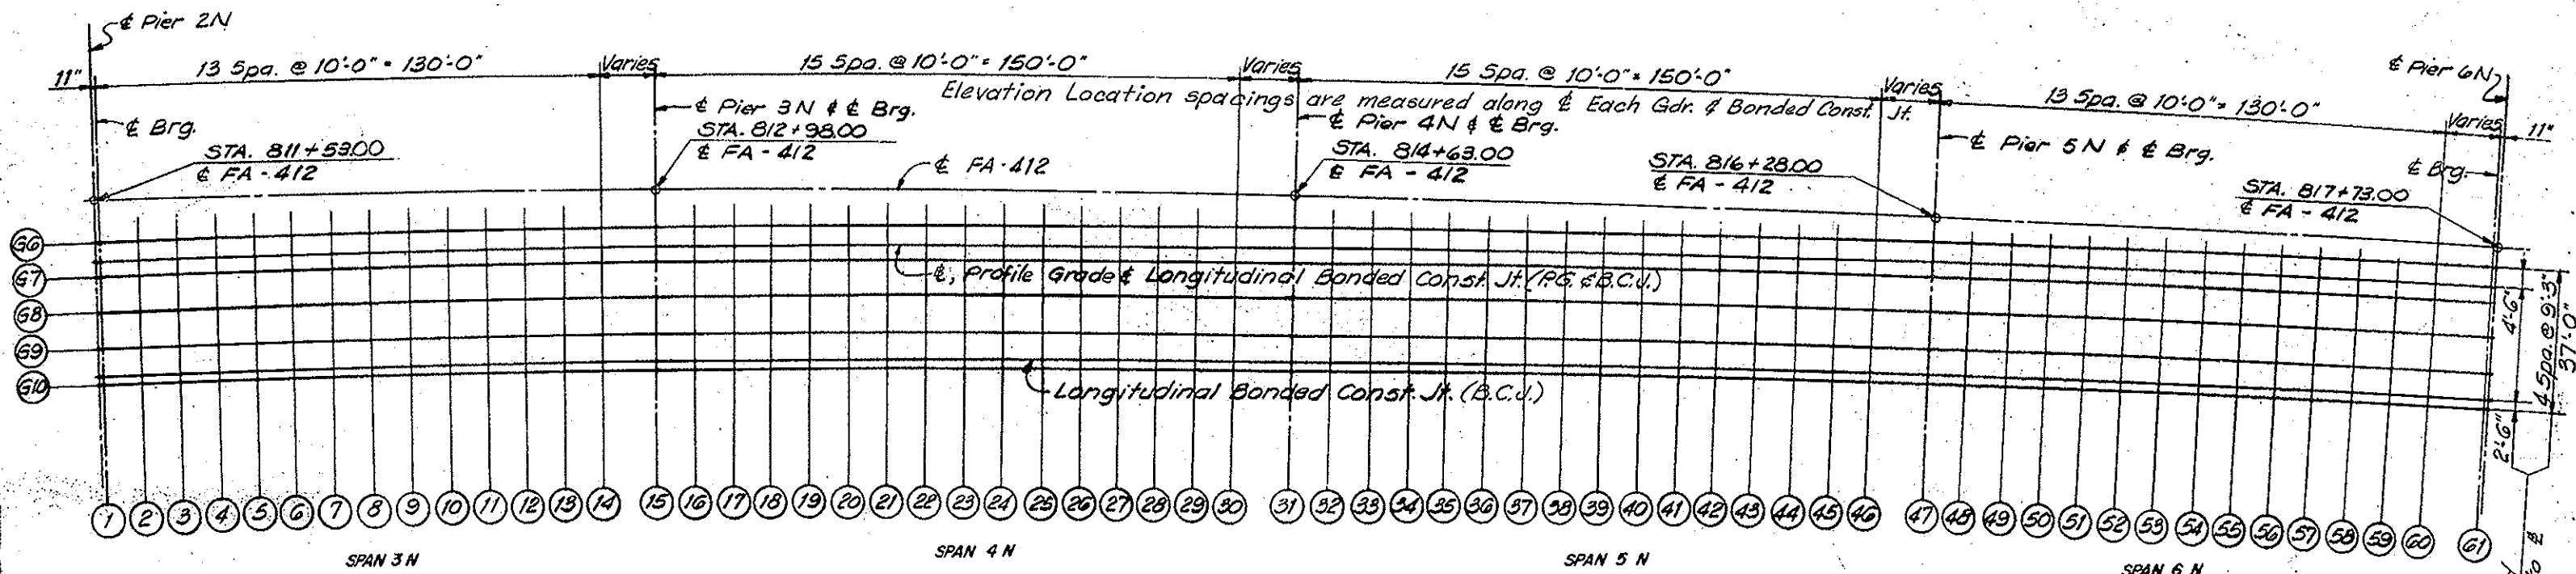 ℄ Pier 2N
11"
13 Spa. @ 10'-0" = 130'-0"
Varies
15 Spa. @ 10'-0" = 150'-0"
Varies
15 Spa. @ 10'-0" = 150'-0"
Varies
13 Spa. @ 10'-0" = 130'-0"
Varies
11"
℄ Pier 6N
Elevation Location spacings are measured along ℄ Each Gdr. & Bonded Const. Jt.
℄ Brg.
℄ Pier 3N & ℄ Brg.
℄ Pier 4N & ℄ Brg.
℄ Pier 5N & ℄ Brg.
℄ Brg.
STA. 811+53.00
℄ FA-412
STA. 812+98.00
℄ FA-412
℄ FA-412
STA. 814+63.00
℄ FA-412
STA. 816+28.00
℄ FA-412
STA. 817+73.00
℄ FA-412
G6
G7
G8
G9
G10
℄, Profile Grade & Longitudinal Bonded Const. Jt. (P.G. & B.C.J.)
Longitudinal Bonded Const. Jt. (B.C.J.)
4'-6"
4 Spa @ 9'-3"
37'-0"
2'-6"
1 2 3 4 5 6 7 8 9 10 11 12 13 14 15 16 17 18 19 20 21 22 23 24 25 26 27 28 29 30 31 32 33 34 35 36 37 38 39 40 41 42 43 44 45 46 47 48 49 50 51 52 53 54 55 56 57 58 59 60 61
SPAN 3 N
SPAN 4 N
SPAN 5 N
SPAN 6 N